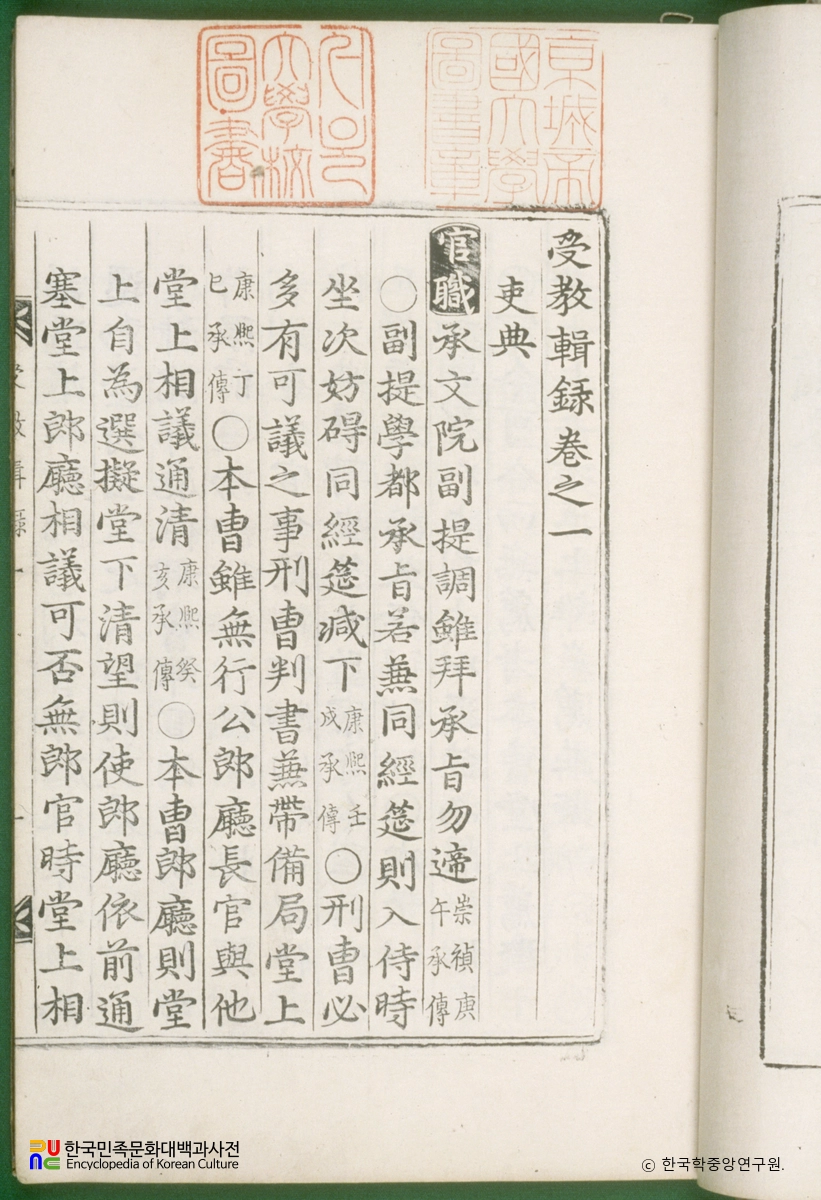 京城帝
國大學
圖書章
大學校
圖書
受教輯録卷之一
吏典
官職承文院副提調雖拜承旨勿遞崇禎庚午承傳
○副提學都承旨若兼同經筵則入侍時
坐次妨碍同經筵减下康熙壬戌承傳○刑曹必
多有可議之事刑曹判書兼帶備局堂上
康熙丁巳承傳○本曹雖無行公郎廳長官與他
堂上相議通清康熙癸亥承傳○本曹郎廳則堂
上自為選擬堂下清望則使郎廳依前通
塞堂上郎廳相議可否無郎官時堂上相
한국민족문화대백과사전
Encyclopedia of Korean Culture
© 한국학중앙연구원.